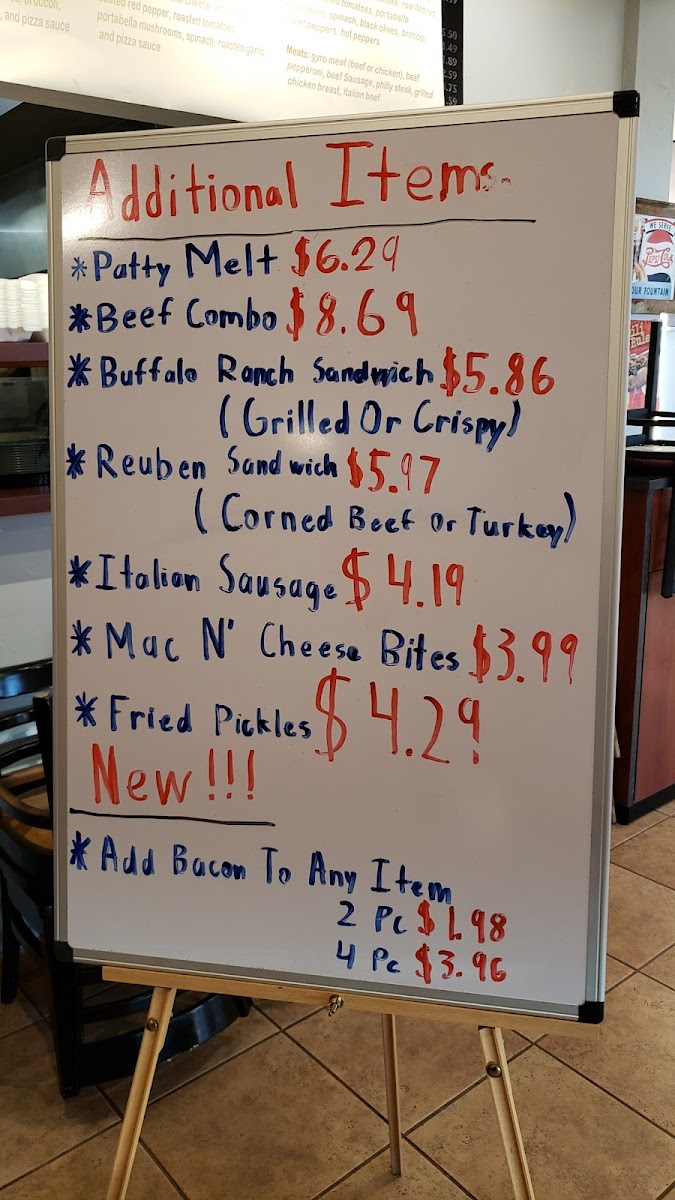 , broccoli,
, and pizza sauce
roasted red pepper, roasted tomatoes,
portabella mushrooms, spinach, roasted garlic
and pizza sauce
roasted tomatoes, portabella
spinach, black olives, broccoli,
hot peppers
Meats: gyro meat (beef or chicken), beef
pepperoni, beef Sausage, philly steak, grilled
chicken breast, italian beef
.50
.49
.89
.59
.75
.59
WE SERVE
PEPSI-COLA
OUR FOUNTAIN
Additional Items.
*Patty Melt $6.29
*Beef Combo $8.69
*Buffalo Ranch Sandwich $5.86
(Grilled Or Crispy)
*Reuben Sandwich $5.97
(Corned Beef or Turkey)
*Italian Sausage $4.19
*Mac N' Cheese Bites $3.99
*Fried Pickles $4.29
New!!!
*Add Bacon To Any Item
2 Pc $1.98
4 Pc $3.96